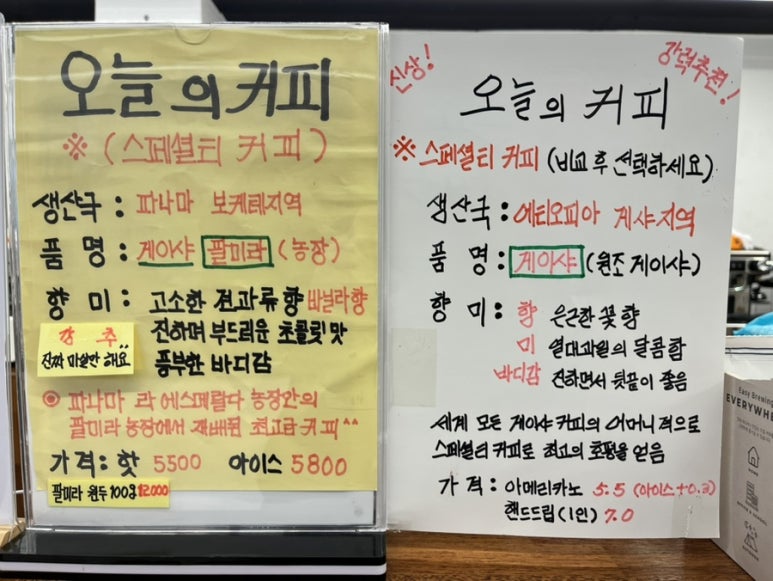 오늘의커피
※(스페셜티 커피)
생산국: 파나마 보케테지역
품 명: 게이샤 팔미라 (농장)
향 미: 고소한 견과류향 바닐라향
진하며 부드러운 초콜릿맛
풍부한 바디감
강 추^^
진짜 미쳤만 해요
◎ 파나마 라 에스메랄다 농장안의
팔미라 농장에서 재배된 최고급 커피^^
가격: 핫 5500 아이스 5800
팔미라 원두 100g 12,000
신상!
강력추천!
오늘의 커피
※ 스페셜티 커피 (비교 후 선택하세요)
생산국: 에티오피아 게샤지역
품 명: 게이샤 (원조 게이샤)
향 미: 향 은은한 꽃향
미 열대과일의 달콤함
바디감 진하면서 뒷끝이 좋음
세계 모든 게이샤 커피의 어머니격으로
스페셜티 커피로 최고의 호평을 얻음
가 격: 아메리카노 5.5 (아이스 +0.3)
핸드드립(1인) 7.0
Easy Brewing
EVERYWHE
HOME